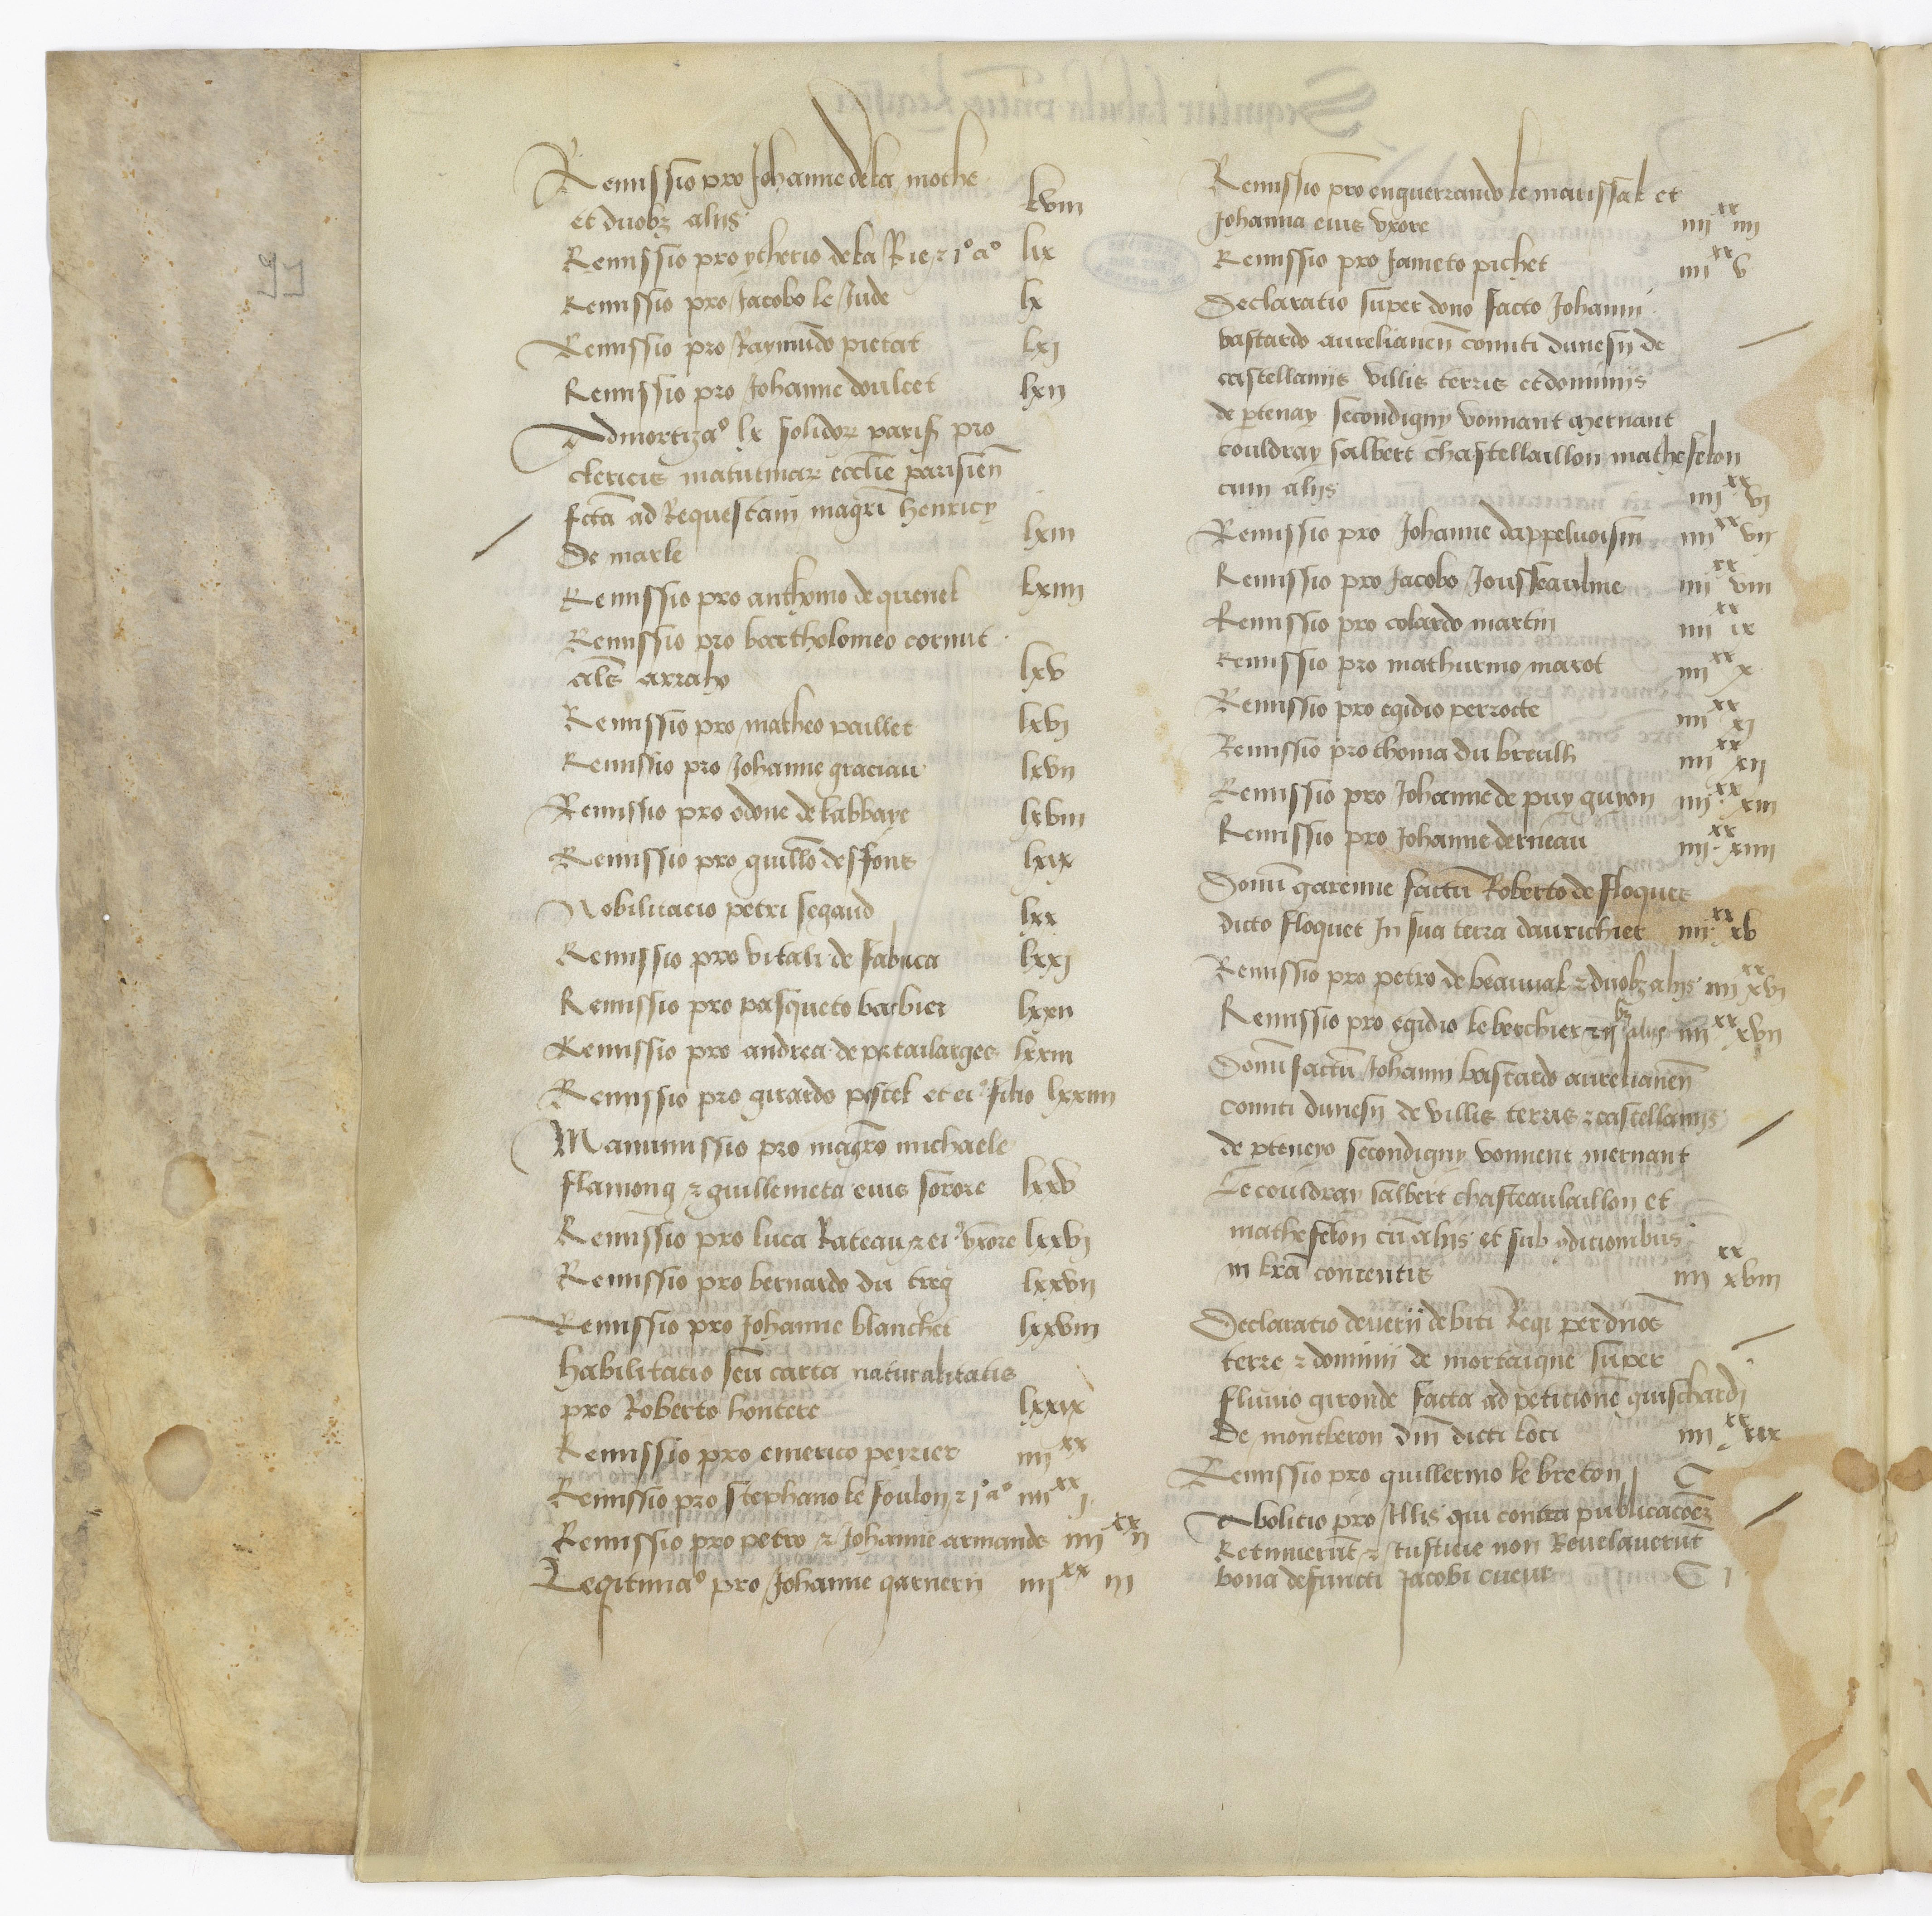 Remissio pro Johanne de la mothe
et duobz aliis lviii
Remissio pro ytherio de la Rie z i° a° lix
Remissio pro Jacobo le Jude lx
Remissio pro Raymundo pietat lxj
Remissio pro Johanne doulcet lxii
Admortiza° lx solidor parisi pro
clericis matutinar ecclie parisien
fcta ad Requestam magri henricy
De marle lxiii
Remissio pro anthonio de quenel lxiiii
Remissio pro bartholomeo cornut
als arrabo lxv
Remissio pro matheo paillet lxvj
Remissio pro Johanne graciau lxvii
Remissio pro odone de labbaye lxviii
Remissio pro guillo desfons lxix
Nobilitacio petri segaud lxx
Remissio pro vitali de fabrica lxxj
Remissio pro pasqueto barbier lxxii
Remissio pro andrea de portailarges lxxiii
Remissio pro girardo pestel et ei° filio lxxiiii
Manumissio pro magro michaele
flamong z guillemeta eius sorore lxxv
Remissio pro luca Rateau z ei° vxore lxxvj
Remissio pro bernardo du treg lxxvii
Remissio pro Johanne blanchet lxxviii
habilitacio seu carta naturalitatis
pro Roberto hontere lxxix
Remissio pro emerico peyrier iiii xx
Remissio pro stephano le foulon z j° a° iiii xx j
Remissio pro petro z Johanne armands iiii xx ii
Legitima° pro Johanne garnerii iiii xx iii
Remissio pro enguerrando le marissal et
Johanna eius vxore iiii xx iiii
Remissio pro Jameto pichet iiii xx v
Declaratio super dono facto Johanni
bastardo aurelianen comiti dunesii de
castellaniis villis terris et dominiis
de ptenay secondigny vonnant mernant
couldray salbert chastellaillon mathefelon
cum aliis iiii xx vj
Remissio pro Johanne dappelvoisin iiii xx vii
Remissio pro Jacobo Jousseaulme iiii xx viii
Remissio pro colardo martin iiii xx ix
Remissio pro mathurino marot iiii xx x
Remissio pro egidio perrocte iiii xx xj
Remissio pro thoma du breulh iiii xx xii
Remissio pro Johanne de puy guyon iiii xx xiii
Remissio pro Johanne derneau iiii xx xiiii
Donu garenne factu Roberto de floques
dicto floquet In sua terra daurichier iiii xx xv
Remissio pro petro de beauval z duobz aliis iiii xx xvj
Remissio pro egidio le berchier z ii bz aliis iiii xx xvii
Donu factu Johanni bastardo aurelianen
comiti dunesii de villis terris z castellaniis
de pteneyo secondigny vonnent mernant
Le couldray salbert chasteaulaillon et
mathefelon cu aliis et sub odicionibus
in lra contentis iiii xx xviii
Declaratio deverii debiti Regi per dnos
terre z dominii de mortaigne super
fluuio gironde facta ad peticione guischardj
De montberon dni dicti loci iiii xx xix
Remissio pro guillermo le breton C
Abolicio pro Illis qui contra publicacoez
Retinuerut z Iusticie non Revelauerut
bona defuncti Jacobi cueur C j